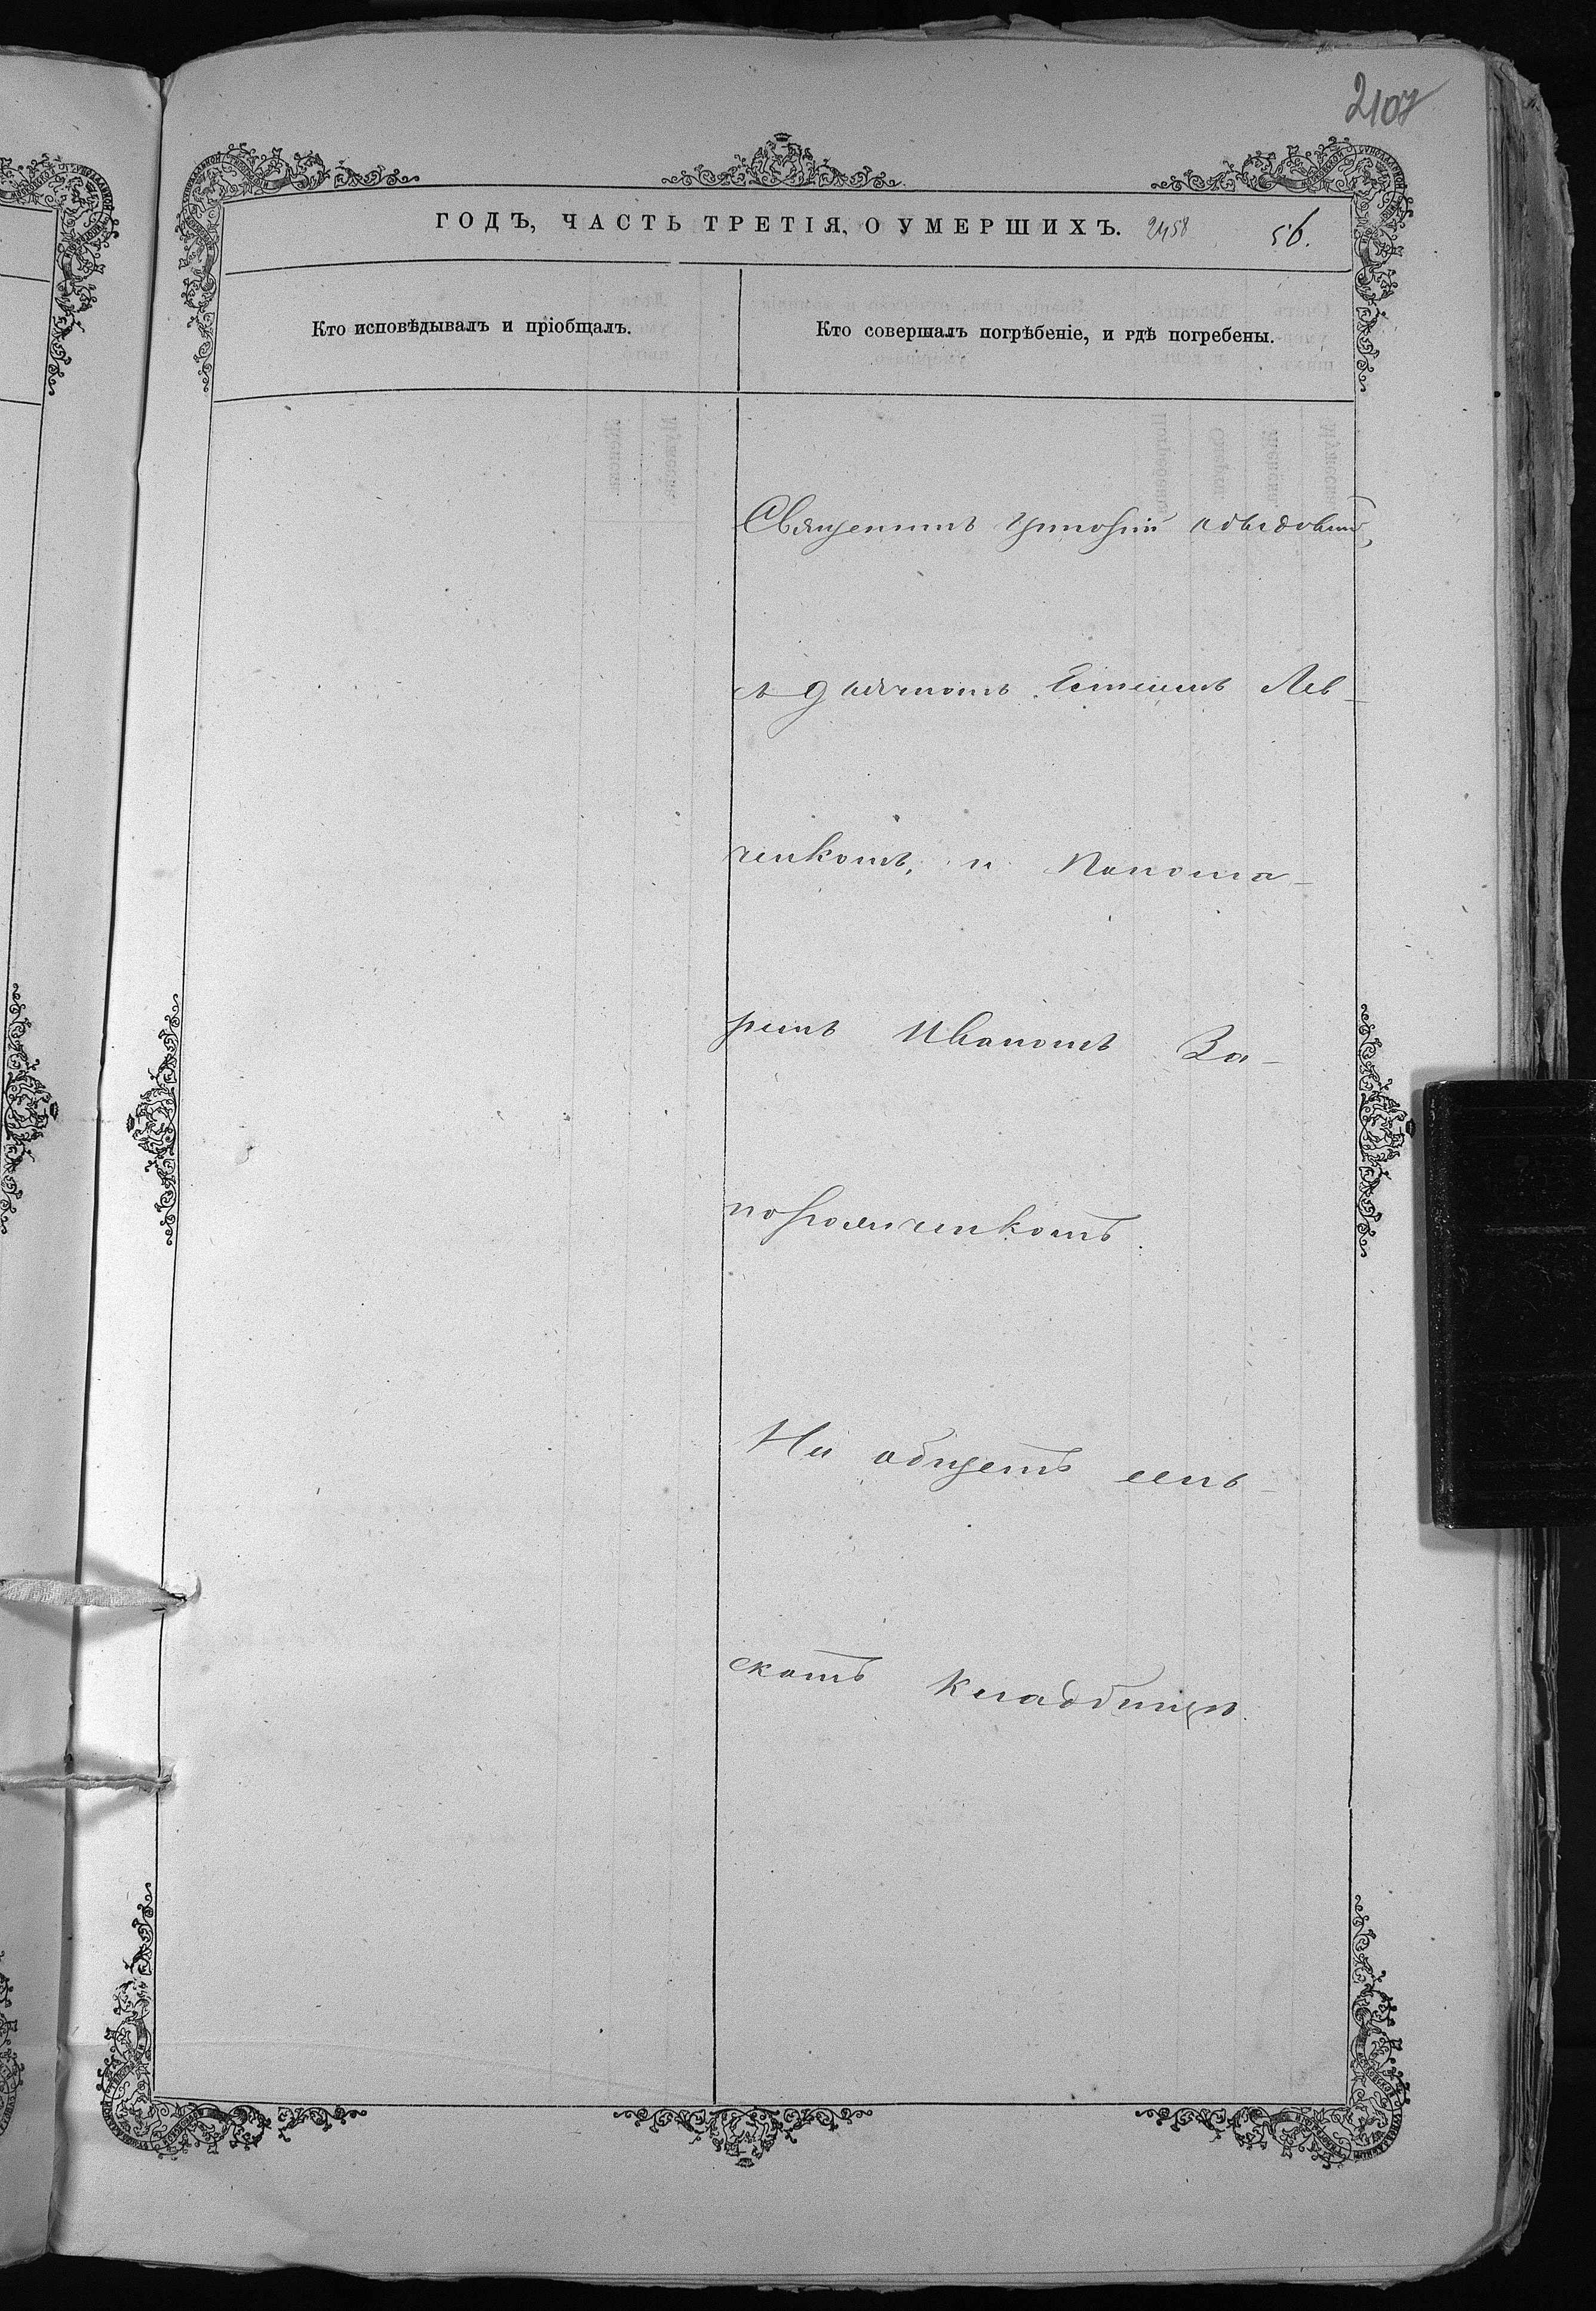 2107
ГОДЪ, ЧАСТЬ ТРЕТІЯ, О УМЕРШИХЪ. 2458 56.
Кто исповѣдывалъ и пріобщалъ.
Кто совершалъ погрѣбеніе, и гдѣ погребены.
Священникъ Григорій
съ дьячкомъ Лев-
ченкомъ, и Панома-
ремъ Иваномъ За-
порожченкомъ.
На общемъ сель-
скомъ кладбищѣ.